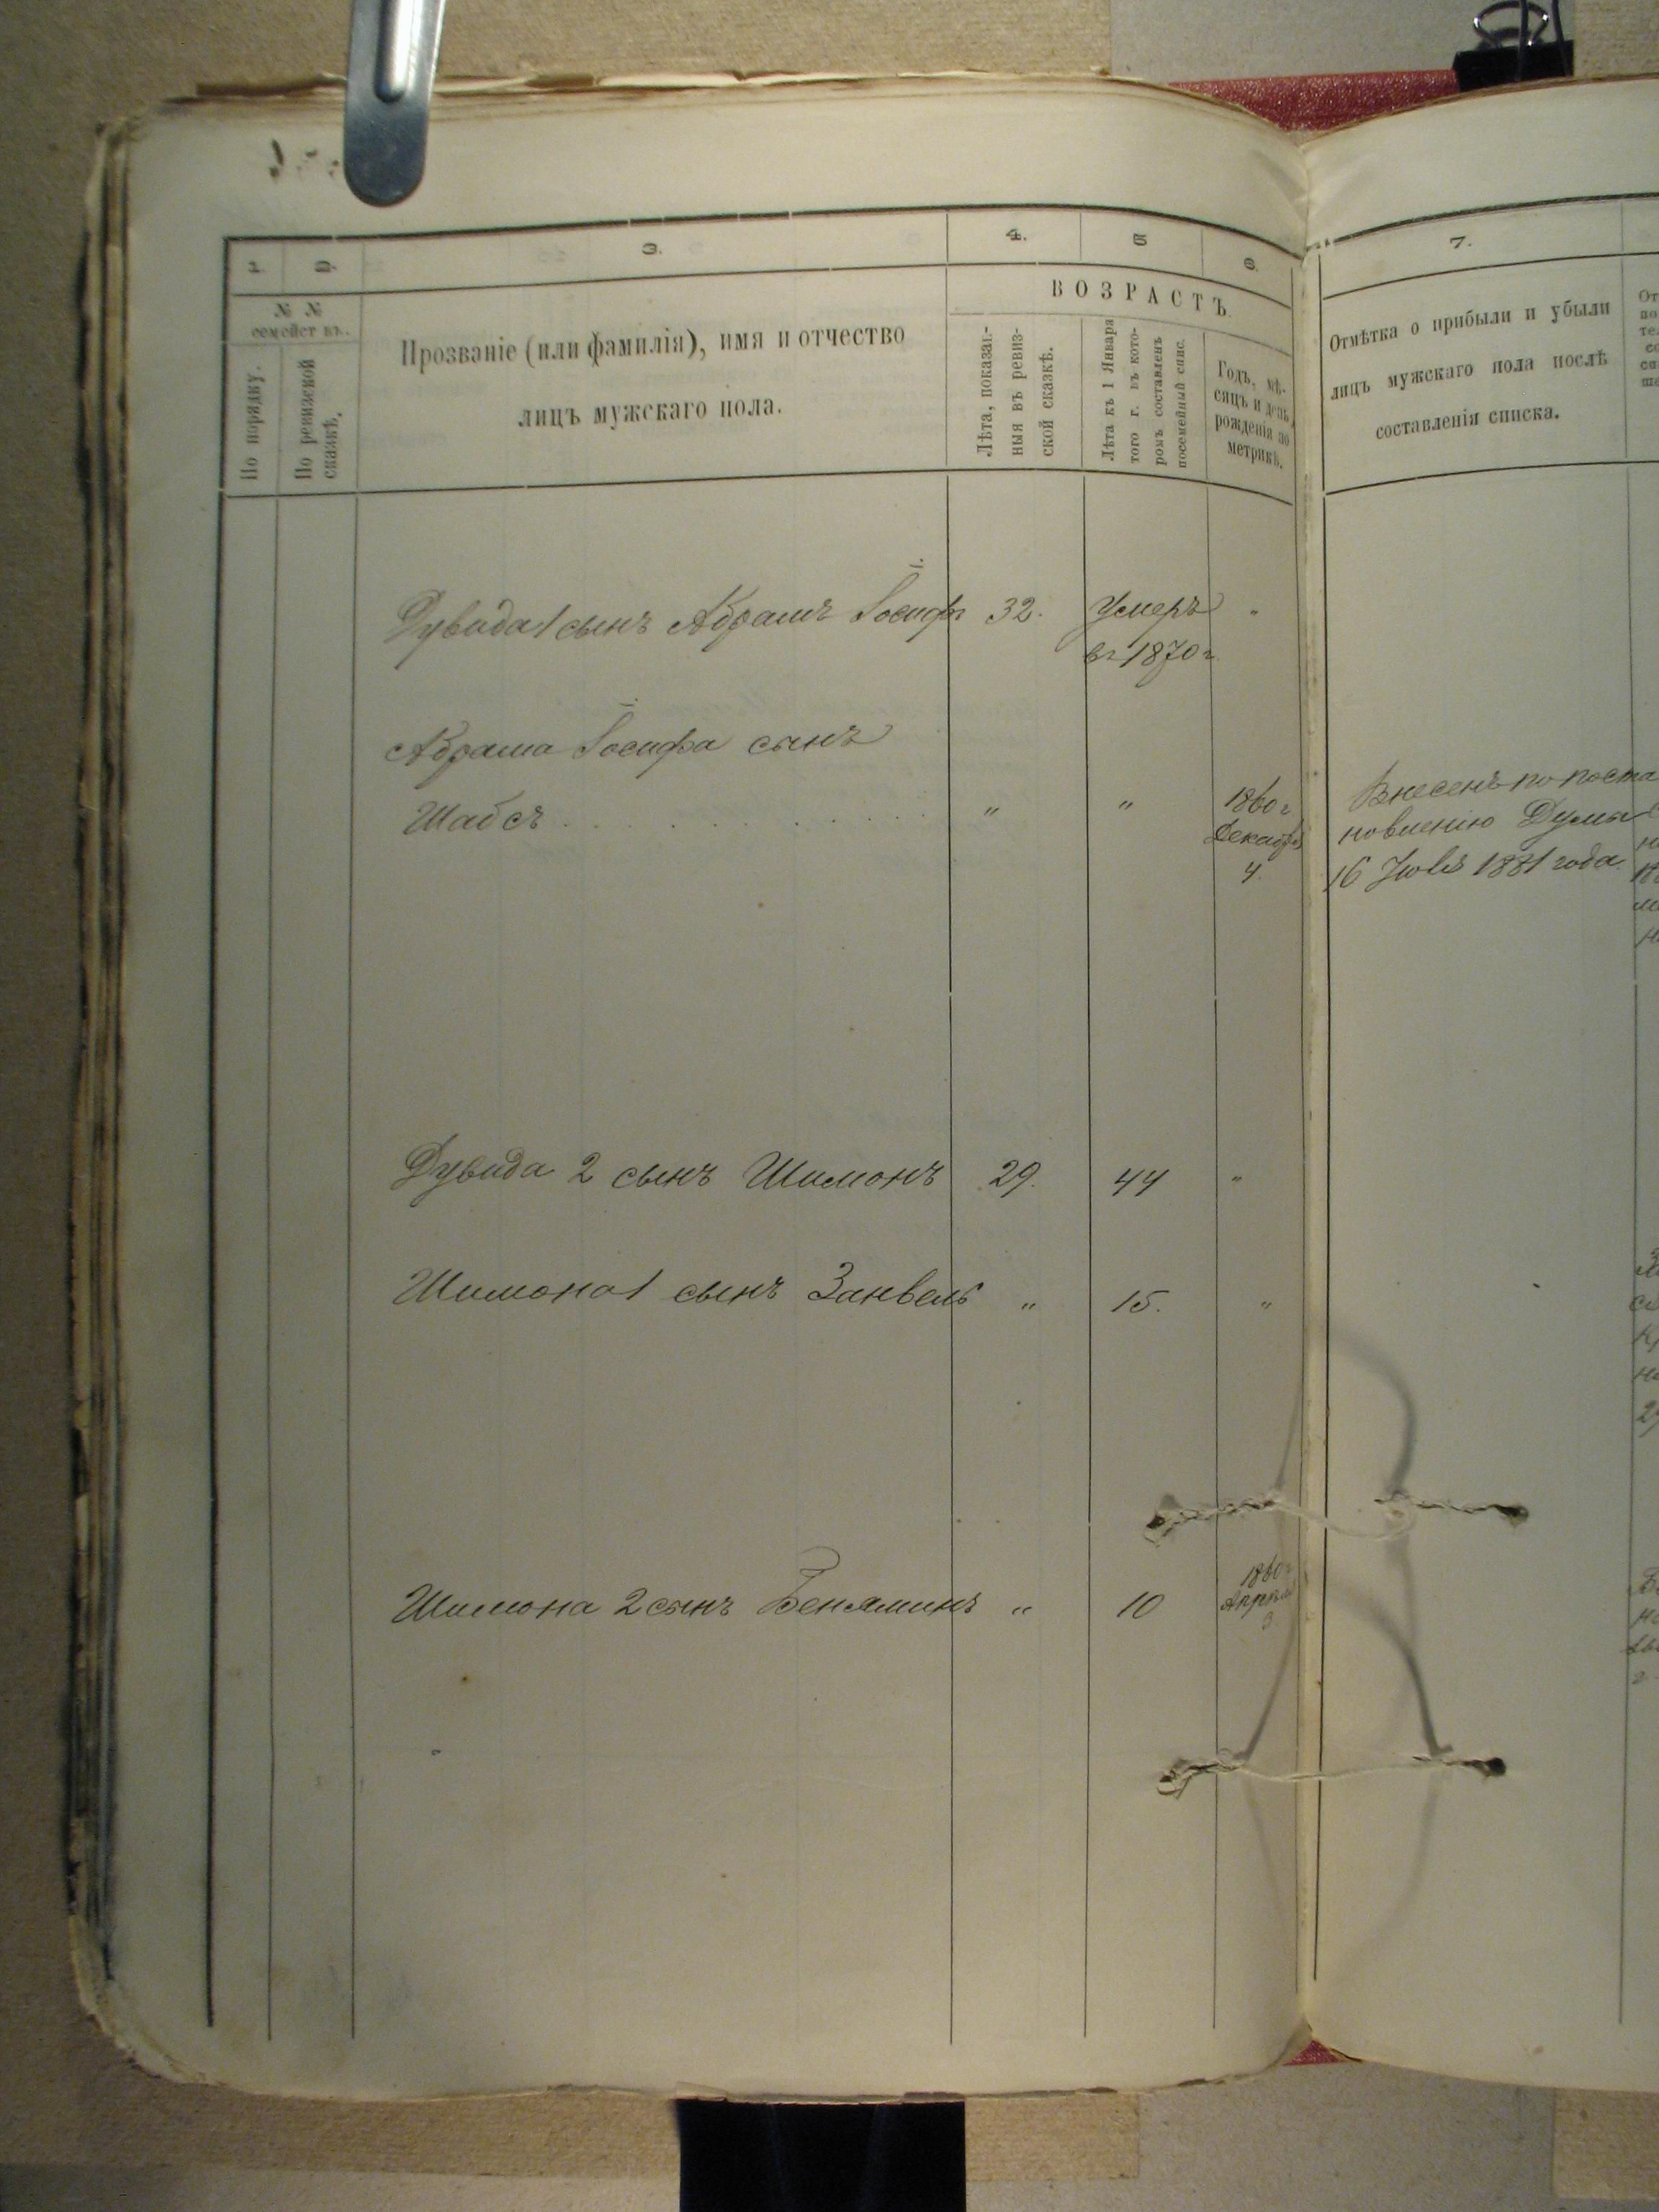 1. 2. 3. 4. 5 6. 7.
№ №
семейст въ.
По порядку.
По ревизской
сказкѣ.
Прозваніе (или фамилія), имя и отчество
лицъ мужскаго пола.
ВОЗРАСТЪ
Лѣта, показан-
ныя въ ревиз-
ской сказкѣ.
Лѣта къ 1 Января
того г. въ кото-
ромъ составленъ
посемейный спис.
Годъ, мѣ-
сяцъ и день
рожденія по
метрикѣ.
Отмѣтка о прибыли и убыли
лицъ мужскаго пола послѣ
составленія списка.
Дувида 1 сынъ Абрамъ Іосифъ 32. Умеръ "
въ 1870 г.
Абрама Іосифа сынъ
Шабсъ . . . . . . . . " " 1860 г
Декабря
4.
Внесенъ по поста
новленію Думы
16 Іюля 1881 года
Дувида 2 сынъ Шимонъ 29. 44 "
Шимона 1 сынъ Занвель " 15. "
Шимона 2 сынъ Беняминъ " 10 1860 г
Апрѣля
3